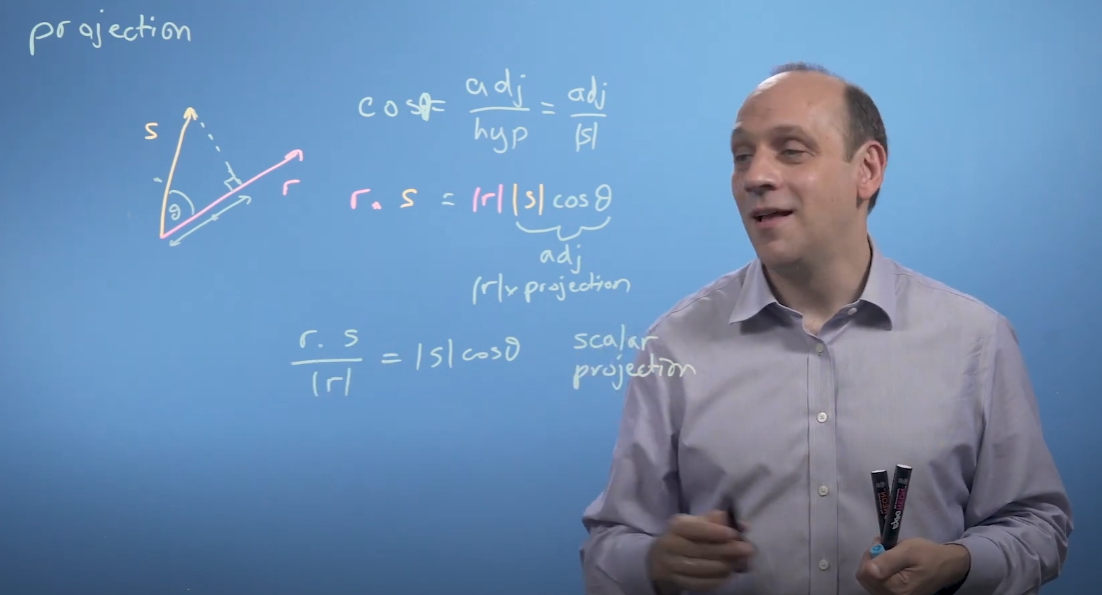 projection
cosθ = adj/hyp = adj/|s|
s
r
θ
r. s = |r||s|cosθ
adj
|r|x projection
r. s/|r| = |s|cosθ
scalar
projection